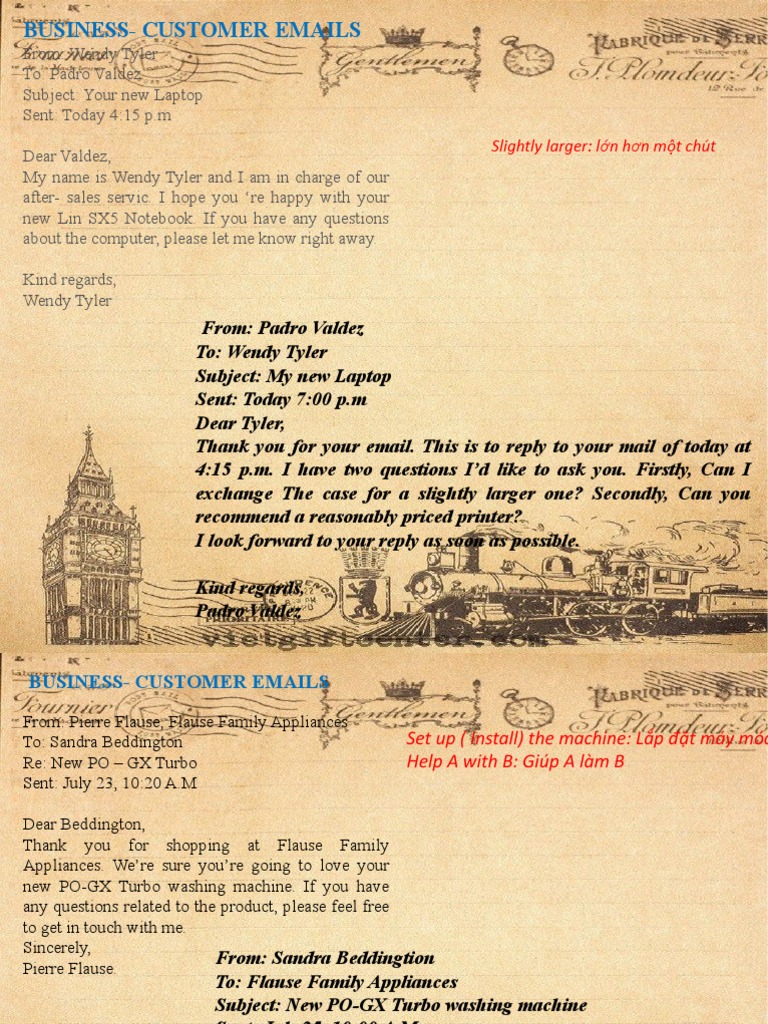 BUSINESS- CUSTOMER EMAILS
From: Wendy Tyler
To: Padro Valdez
Subject: Your new Laptop
Sent: Today 4:15 p.m
Gentlemen
FABRIQUE DE SERR
pour Bâtiments
12 Rue de
Slightly larger: lớn hơn một chút
Dear Valdez,
My name is Wendy Tyler and I am in charge of our
after- sales servic. I hope you ‘re happy with your
new Lin SX5 Notebook. If you have any questions
about the computer, please let me know right away.
Kind regards,
Wendy Tyler
From: Padro Valdez
To: Wendy Tyler
Subject: My new Laptop
Sent: Today 7:00 p.m
Dear Tyler,
Thank you for your email. This is to reply to your mail of today at
4:15 p.m. I have two questions I’d like to ask you. Firstly, Can I
exchange The case for a slightly larger one? Secondly, Can you
recommend a reasonably priced printer?
I look forward to your reply as soon as possible.
Kind regards,
Padro Valdez
vietgiftcenter.com
BUSINESS- CUSTOMER EMAILS
Fournier
Gentlemen
FABRIQUE DE SERR
From: Pierre Flause, Flause Family Appliances
To: Sandra Beddington
Re: New PO – GX Turbo
Sent: July 23, 10:20 A.M
Set up ( Install) the machine: Lắp đặt máy móc
Help A with B: Giúp A làm B
Dear Beddington,
Thank you for shopping at Flause Family
Appliances. We’re sure you’re going to love your
new PO-GX Turbo washing machine. If you have
any questions related to the product, please feel free
to get in touch with me.
Sincerely,
Pierre Flause.
From: Sandra Beddingtion
To: Flause Family Appliances
Subject: New PO-GX Turbo washing machine